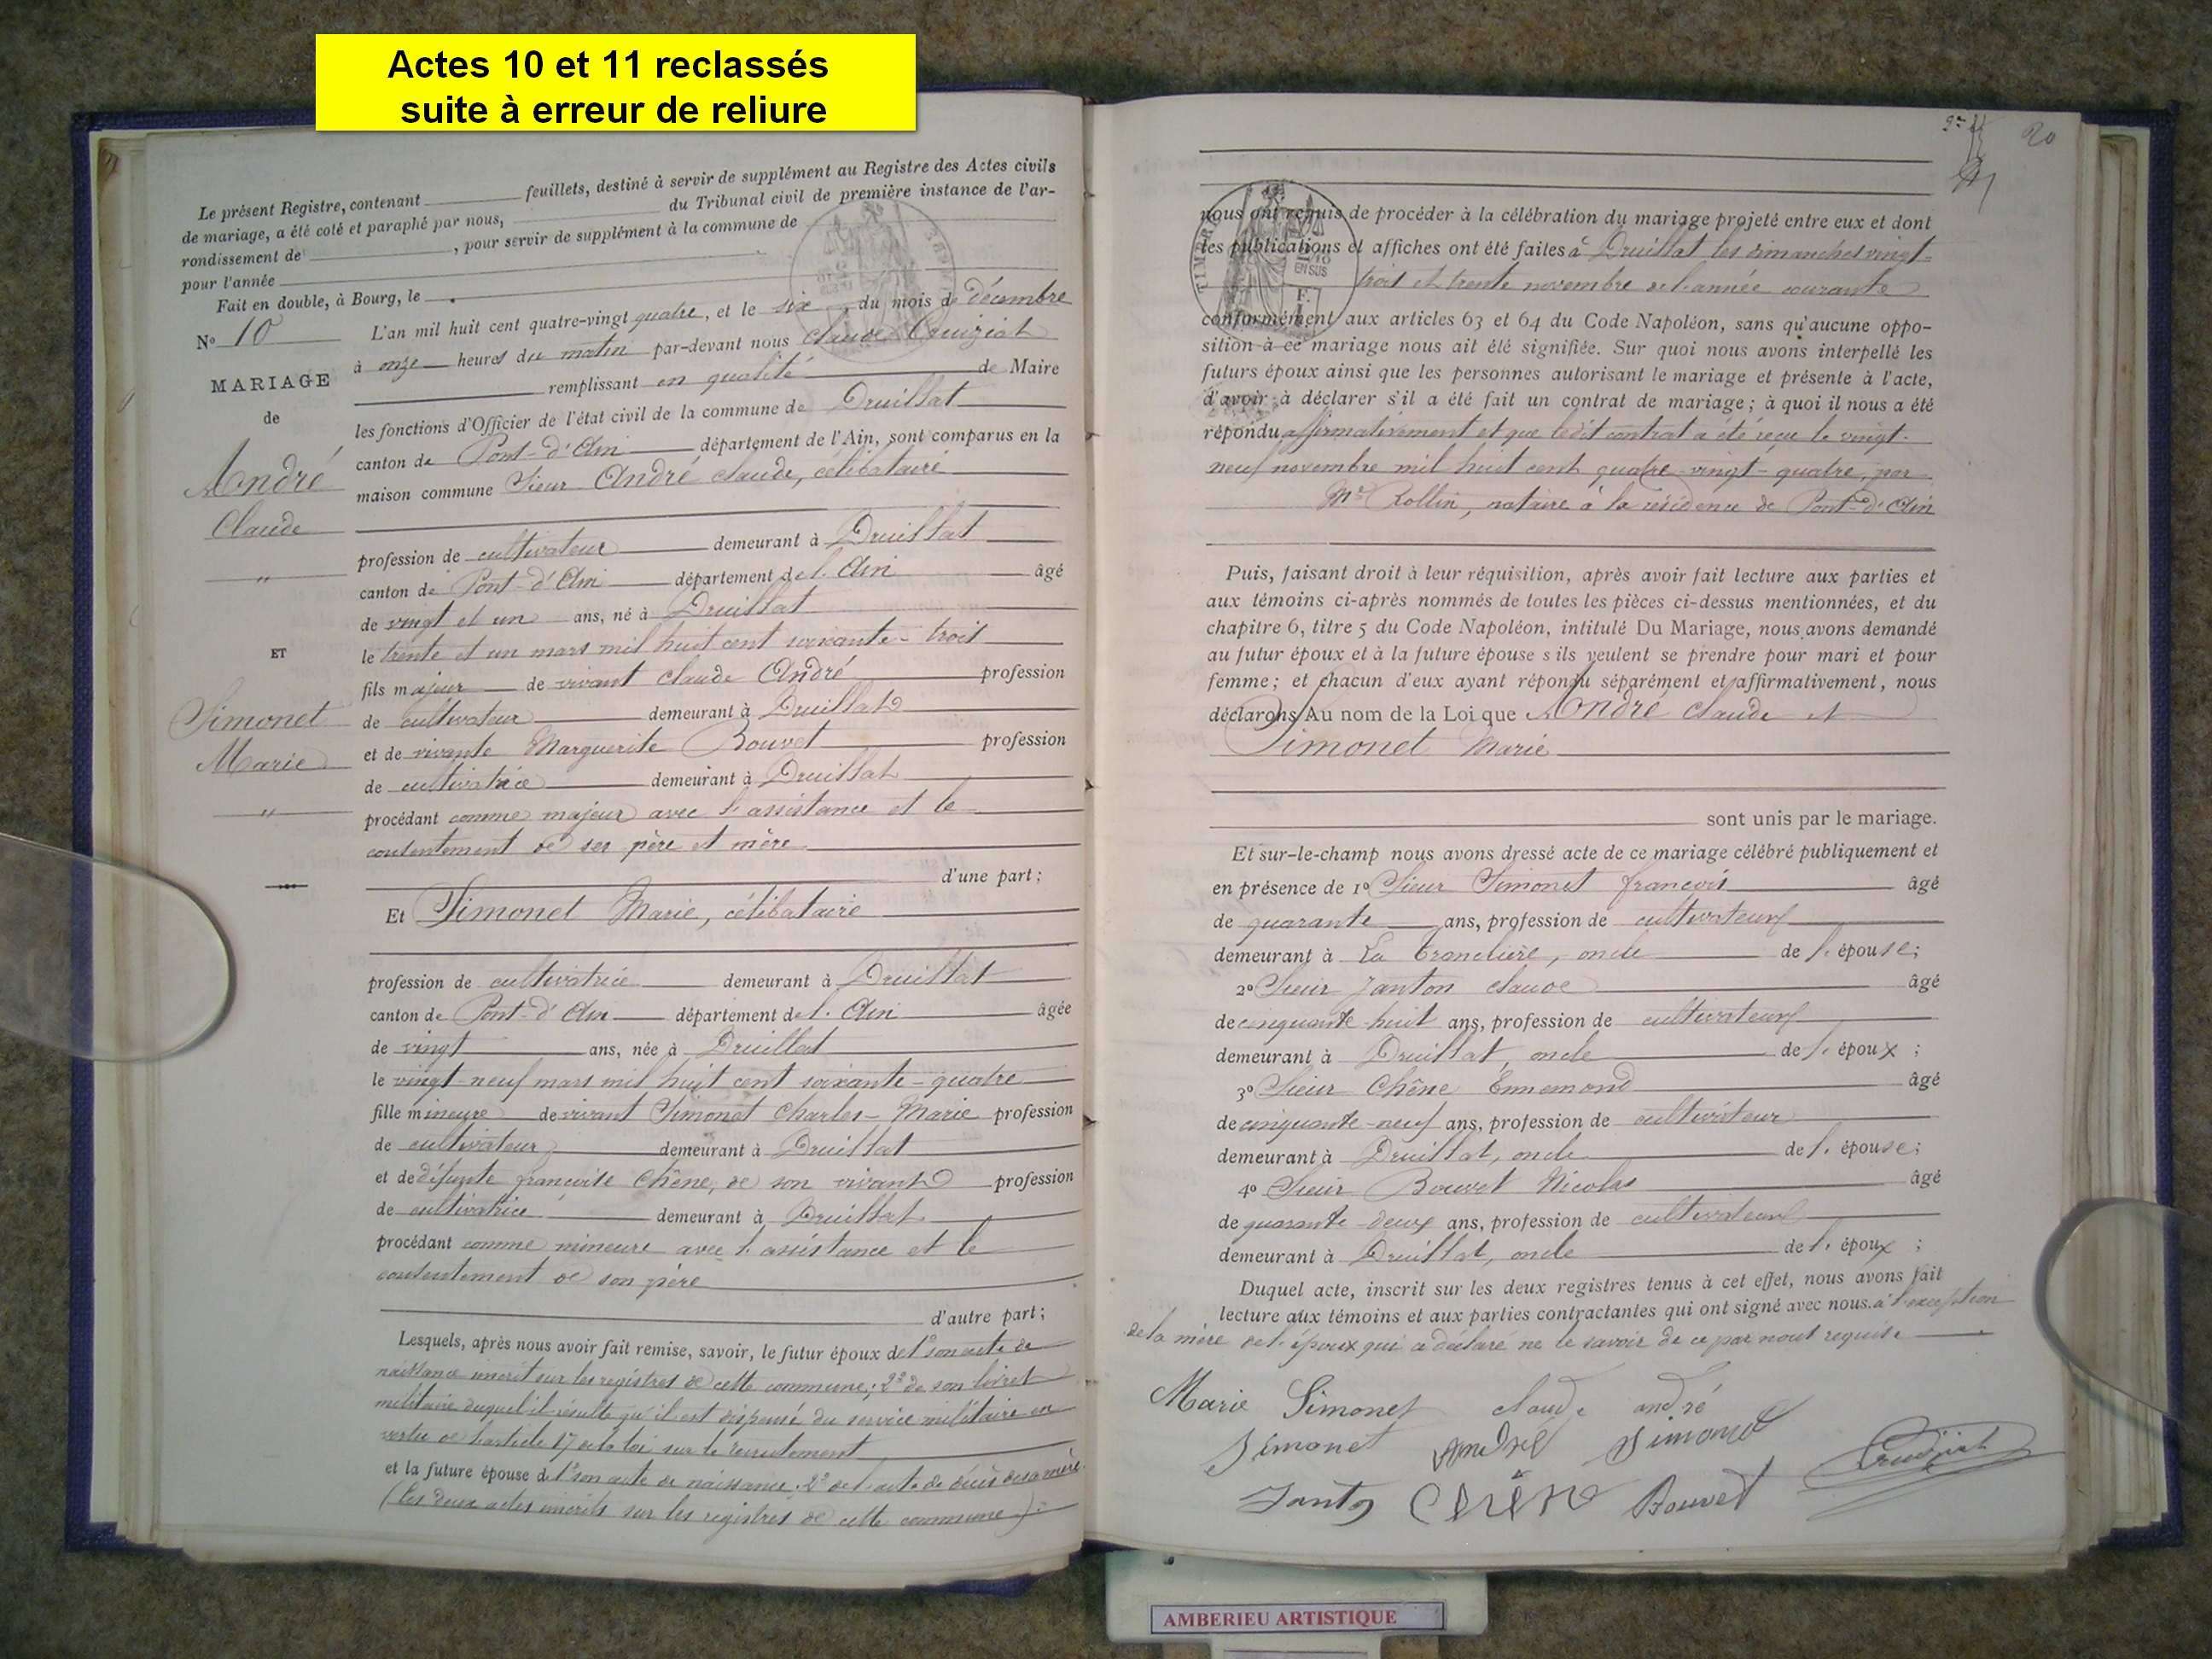 Actes 10 et 11 reclassés
suite à erreur de reliure
Le présent Registre, contenant feuillets, destiné à servir de supplément au Registre des Actes civils
de mariage, a été coté et paraphé par nous, du Tribunal civil de première instance de l'ar-
rondissement de , pour servir de supplément à la commune de
pour l'année
Fait en double, à Bourg, le
No 10
MARIAGE
de
André
Claude
"
ET
Simonet
Marie
"
L'an mil huit cent quatre-vingt quatre, et le six du mois de décembre
à onze heures du matin par-devant nous Claude Cruiziat
remplissant en qualité de Maire
les fonctions d'Officier de l'état civil de la commune de Druillat
canton de Pont-d'Ain département de l'Ain, sont comparus en la
maison commune Sieur André Claude, célibataire
profession de cultivateur demeurant à Druillat
canton de Pont-d'Ain département de l'Ain âgé
de vingt et un ans, né à Druillat
le trente et un mars mil huit cent soixante-trois
fils majeur de vivant Claude André profession
de cultivateur demeurant à Druillat
et de vivante Marguerite Bouvet profession
de cultivatrice demeurant à Druillat
procédant comme majeur avec l'assistance et le
contentement de ses père et mère
d'une part;
Et Simonet Marie, célibataire
profession de cultivatrice demeurant à Druillat
canton de Pont-d'Ain département de l'Ain âgée
de vingt ans, née à Druillat
le vingt-neuf mars mil huit cent soixante-quatre
fille mineure de vivant Simonet Charles-Marie profession
de cultivateur demeurant à Druillat
et de défunte françoise Chêne, de son vivant profession
de cultivatrice demeurant à Druillat
procédant comme mineure avec l'assistance et le
contentement de son père
d'autre part;
Lesquels, après nous avoir fait remise, savoir, le futur époux de 1° son acte de
naissance inscrit sur les registres de cette commune; 2° de son livret
militaire duquel il résulte qu'il est dispensé du service militaire en
vertu de l'article 17 de la loi sur le recrutement
et la future épouse de 1° son acte de naissance. 2° de l'acte de décès de sa mère
(les deux actes inscrits sur les registres de cette commune).
20
nous ont requis de procéder à la célébration du mariage projeté entre eux et dont
les publications et affiches ont été faites à Druillat les dimanches vingt-
trois et trente novembre de l'année courante
conformément aux articles 63 et 64 du Code Napoléon, sans qu'aucune oppo-
sition à ce mariage nous ait été signifiée. Sur quoi nous avons interpellé les
futurs époux ainsi que les personnes autorisant le mariage et présente à l'acte,
d'avoir à déclarer s'il a été fait un contrat de mariage; à quoi il nous a été
répondu affirmativement et que ledit contrat a été reçu le vingt-
neuf novembre mil huit cent quatre-vingt-quatre, par
Me Rollin, notaire à la résidence de Pont-d'Ain
Puis, faisant droit à leur réquisition, après avoir fait lecture aux parties et
aux témoins ci-après nommés de toutes les pièces ci-dessus mentionnées, et du
chapitre 6, titre 5 du Code Napoléon, intitulé Du Mariage, nous avons demandé
au futur époux et à la future épouse s'ils veulent se prendre pour mari et pour
femme; et chacun d'eux ayant répondu séparément et affirmativement, nous
déclarons Au nom de la Loi que André Claude et
Simonet Marie
sont unis par le mariage.
Et sur-le-champ nous avons dressé acte de ce mariage célébré publiquement et
en présence de 1o Sieur Simonet françois âgé
de quarante ans, profession de cultivateur
demeurant à La Tranclière, oncle de l'épouse;
2o Sieur Janton Claude âgé
de cinquante-huit ans, profession de cultivateur
demeurant à Druillat, oncle de l'époux;
3o Sieur Chêne Ennemond âgé
de cinquante-neuf ans, profession de cultivateur
demeurant à Druillat, oncle de l'épouse;
4o Sieur Bouvet Nicolas âgé
de quarante-deux ans, profession de cultivateur
demeurant à Druillat, oncle de l'époux;
Duquel acte, inscrit sur les deux registres tenus à cet effet, nous avons fait
lecture aux témoins et aux parties contractantes qui ont signé avec nous à l'exception
de la mère de l'époux qui a déclaré ne le savoir de ce par nous requise
Marie Simonet Claude andré
Simonet André Simonet
Janton Chêne Bouvet Cruiziat
AMBERIEU ARTISTIQUE